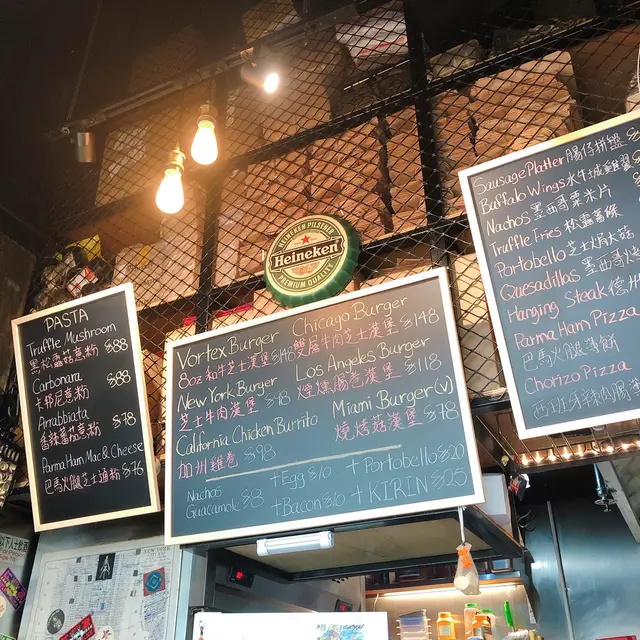 PASTA
Truffle Mushroom
黑松露菇意粉 $88
Carbonara $88
卡邦尼意粉
Arrabbiata $78
香辣蕃茄意粉
Parma Ham Mac & Cheese
巴馬火腿芝士通粉 $76
HEINEKEN PILSENER
Heineken
PREMIUM QUALITY
Vortex Burger
8oz和牛芝士漢堡 $148
New York Burger
芝士牛肉漢堡 $98
California Chicken Burrito
加州雞卷 $98
Chicago Burger
雙層牛肉芝士漢堡 $148
Los Angeles Burger
煙燻腸卷漢堡 $118
Miami Burger (v)
燒烤菇漢堡 $78
Nachos
Guacamole $8
+Egg $10 +Portobello $20
+Bacon $10 +KIRIN $25
Sausage Platter 腸仔拼盤
Buffalo Wings 水牛城雞翼
Nachos 墨西哥粟米片
Truffle Fries 松露薯條
Portobello 芝士焗大菇
Quesadillas 墨西哥烤
Hanging Steak 德州
Parma Ham Pizza
巴馬火腿薄餅
Chorizo Pizza
西班牙辣肉腸
NEW YORK